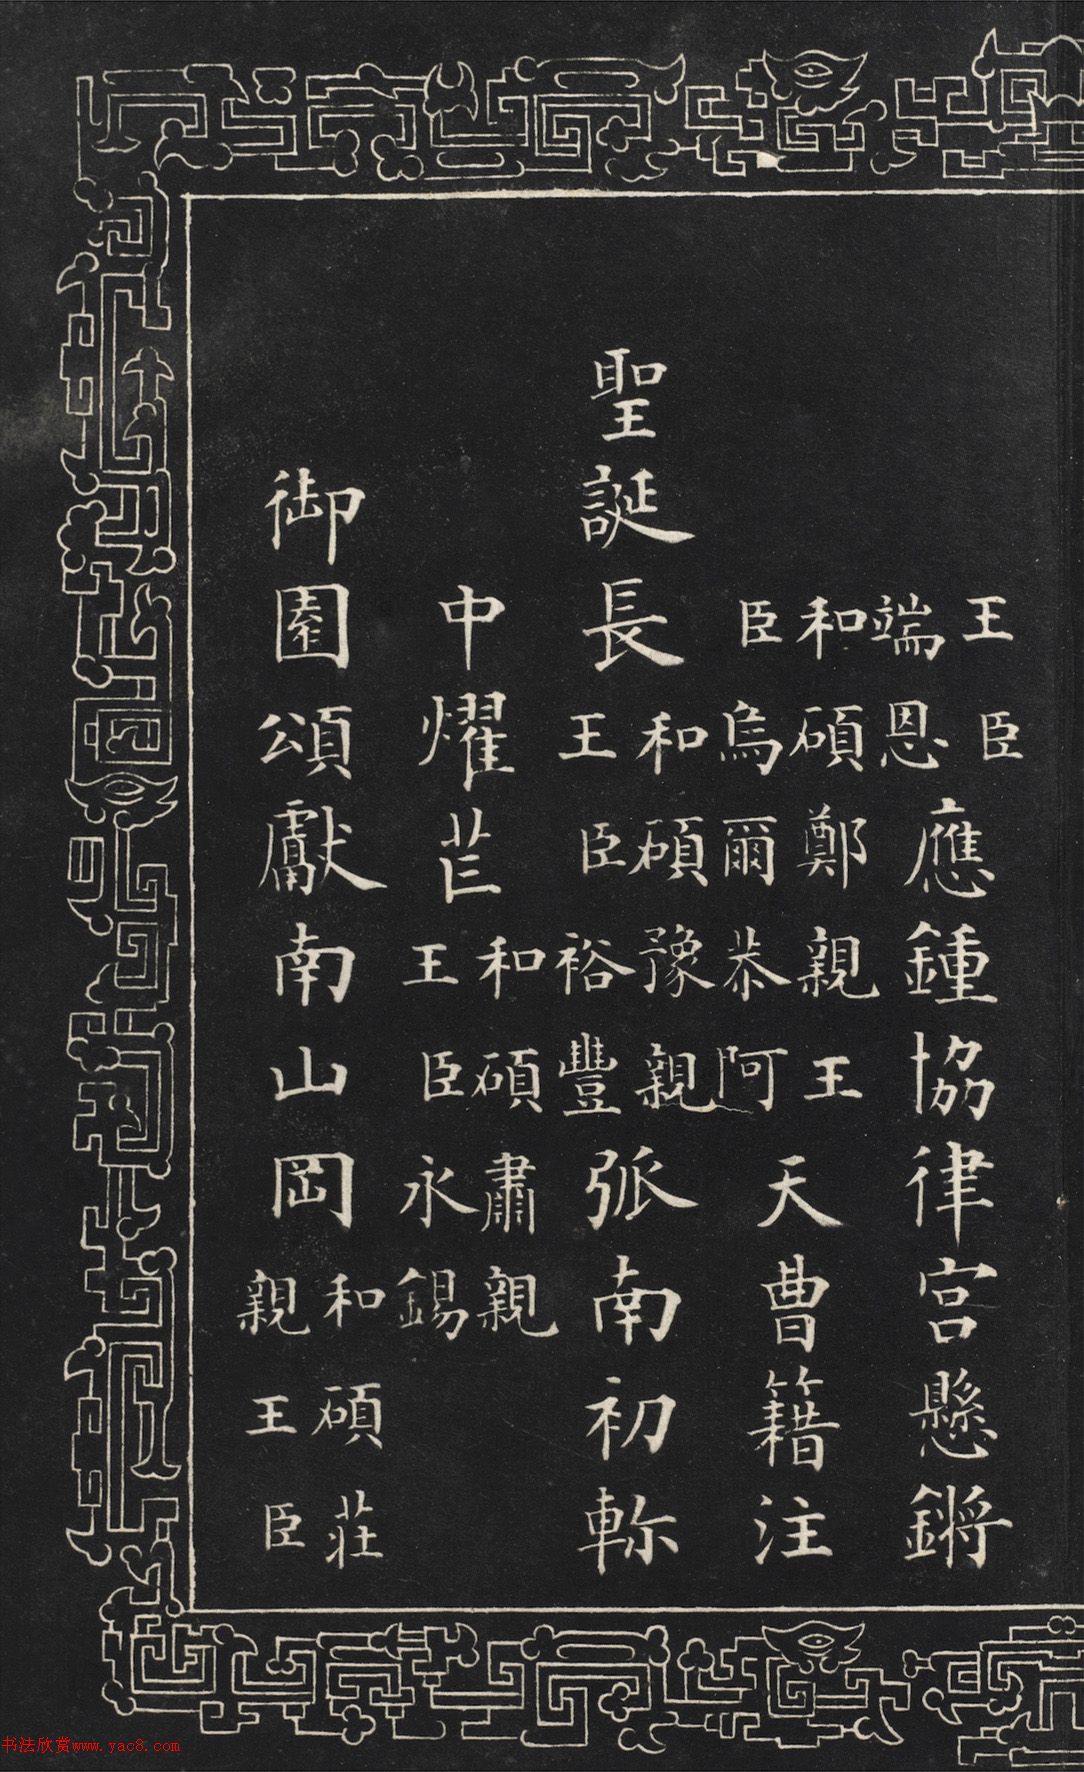 王臣端恩應鍾協律宮懸鏘
和碩鄭親王臣烏爾恭阿天曹籍注
聖誕長和碩豫親王臣裕豐弧南初軫
中燿芒和碩肅親王臣永錫
御園頌獻南山岡和碩莊親王臣
书法欣赏www.yac8.com